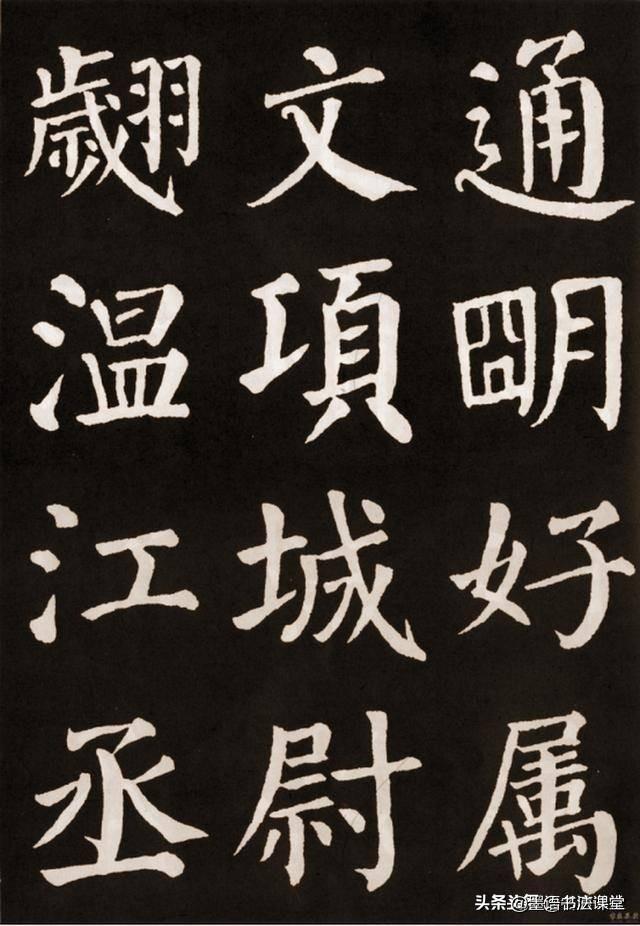 通朙好属
文項城尉
翽温江丞
头条 @墨语书法课堂